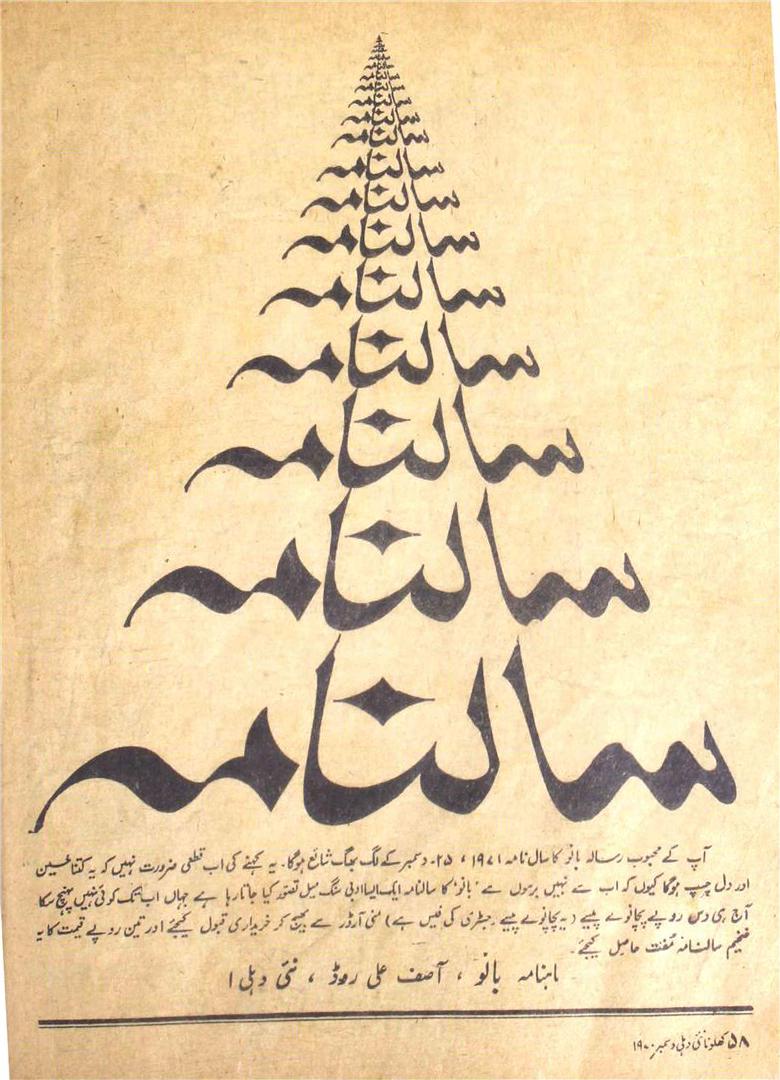 سالنامہ
سالنامہ
سالنامہ
سالنامہ
سالنامہ
سالنامہ
سالنامہ
سالنامہ
سالنامہ
سالنامہ
سالنامہ
سالنامہ
سالنامہ
سالنامہ
سالنامہ
آپ کے محبوب رسالہ بانو کا سال نامہ ۱۹۷۱ء، ۲۵۔ دسمبر کے لگ بھگ شائع ہوگا۔ یہ کہنے کی اب قطعی ضرورت نہیں کہ یہ کتنا حسین
اور دل چسپ ہوگا کیوں کہ اب سے نہیں برسوں سے ’بانو‘ کا سالنامہ ایک ایسا ادبی سنگ میل تصور کیا جاتا رہا ہے جہاں اب تک کوئی نہیں پہنچ سکا
آج ہی دس روپے پچانوے پیسے (یہ پچانوے پیسے رجسٹری کی فیس ہے) منی آرڈر سے بھیج کر خریداری قبول کیجئے اور تین روپے قیمت کا یہ
ضخیم سالنامہ مفت حاصل کیجئے۔
ماہنامہ بانو، آصف علی روڈ، نئی دہلی ۱
۵۸ کھلونا نئی دہلی دسمبر ۱۹۷۰